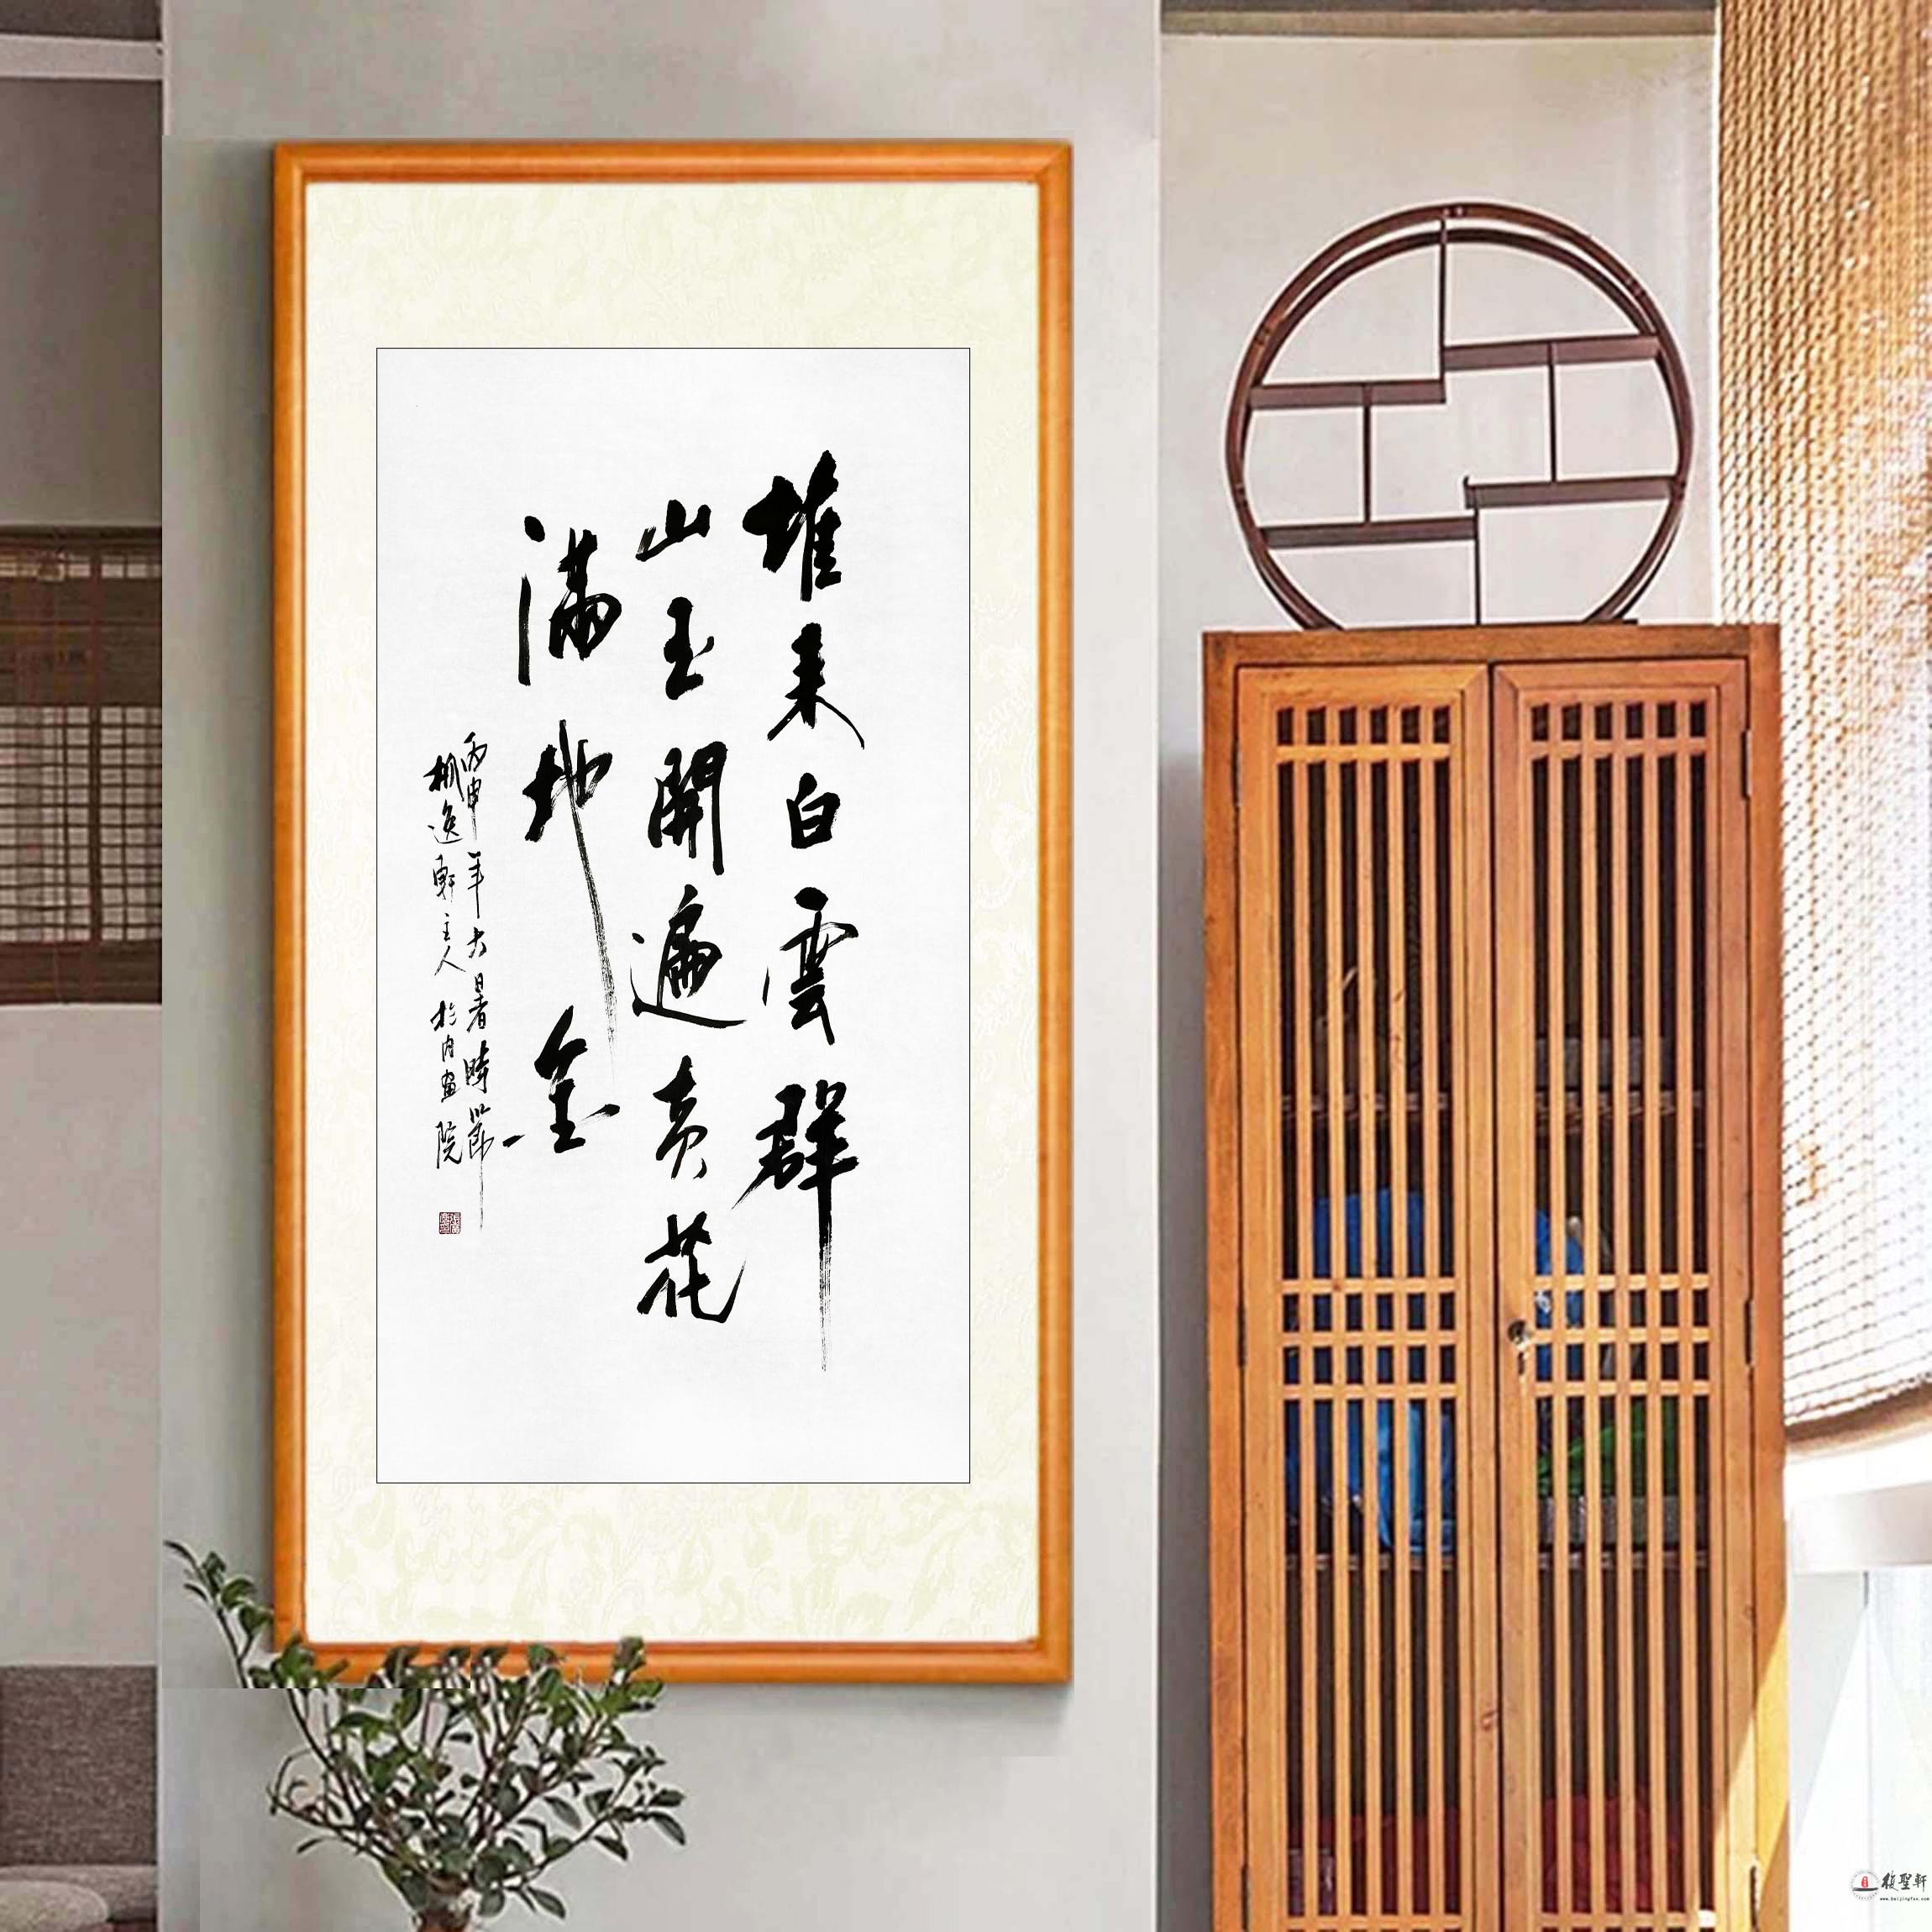 堆来白雲群
山玉開遍黄花
满地金
丙申年大暑時節
楓逸軒主人於内畫院
復聖軒
www.beijingfsx.com